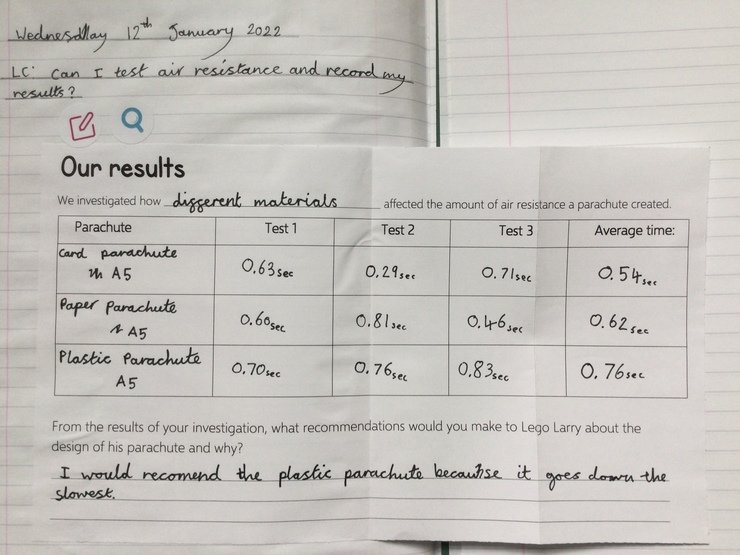 Wednesday 12th January 2022
LC: Can I test air resistance and record my
results?
Our results
We investigated how different materials affected the amount of air resistance a parachute created.
Parachute Test 1 Test 2 Test 3 Average time:
Card parachute
A5 0.63sec 0.29sec 0.71sec 0.54sec
Paper Parachute
A5 0.60sec 0.81sec 0.46sec 0.62sec
Plastic Parachute
A5 0.70sec 0.76sec 0.83sec 0.76sec
From the results of your investigation, what recommendations would you make to Lego Larry about the
design of his parachute and why?
I would recomend the plastic parachute because it goes down the
slowest.